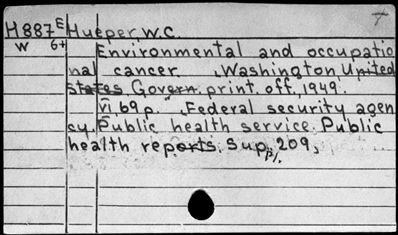 T
H887E Hueper, W.C.
W 6+ Environmental and occupatio
nal cancer. Washington, United
states Govern. print. off., 1949.
vi, 69 p. Federal security agen
cy. Public health service. Public
health reports. Sup. 209,